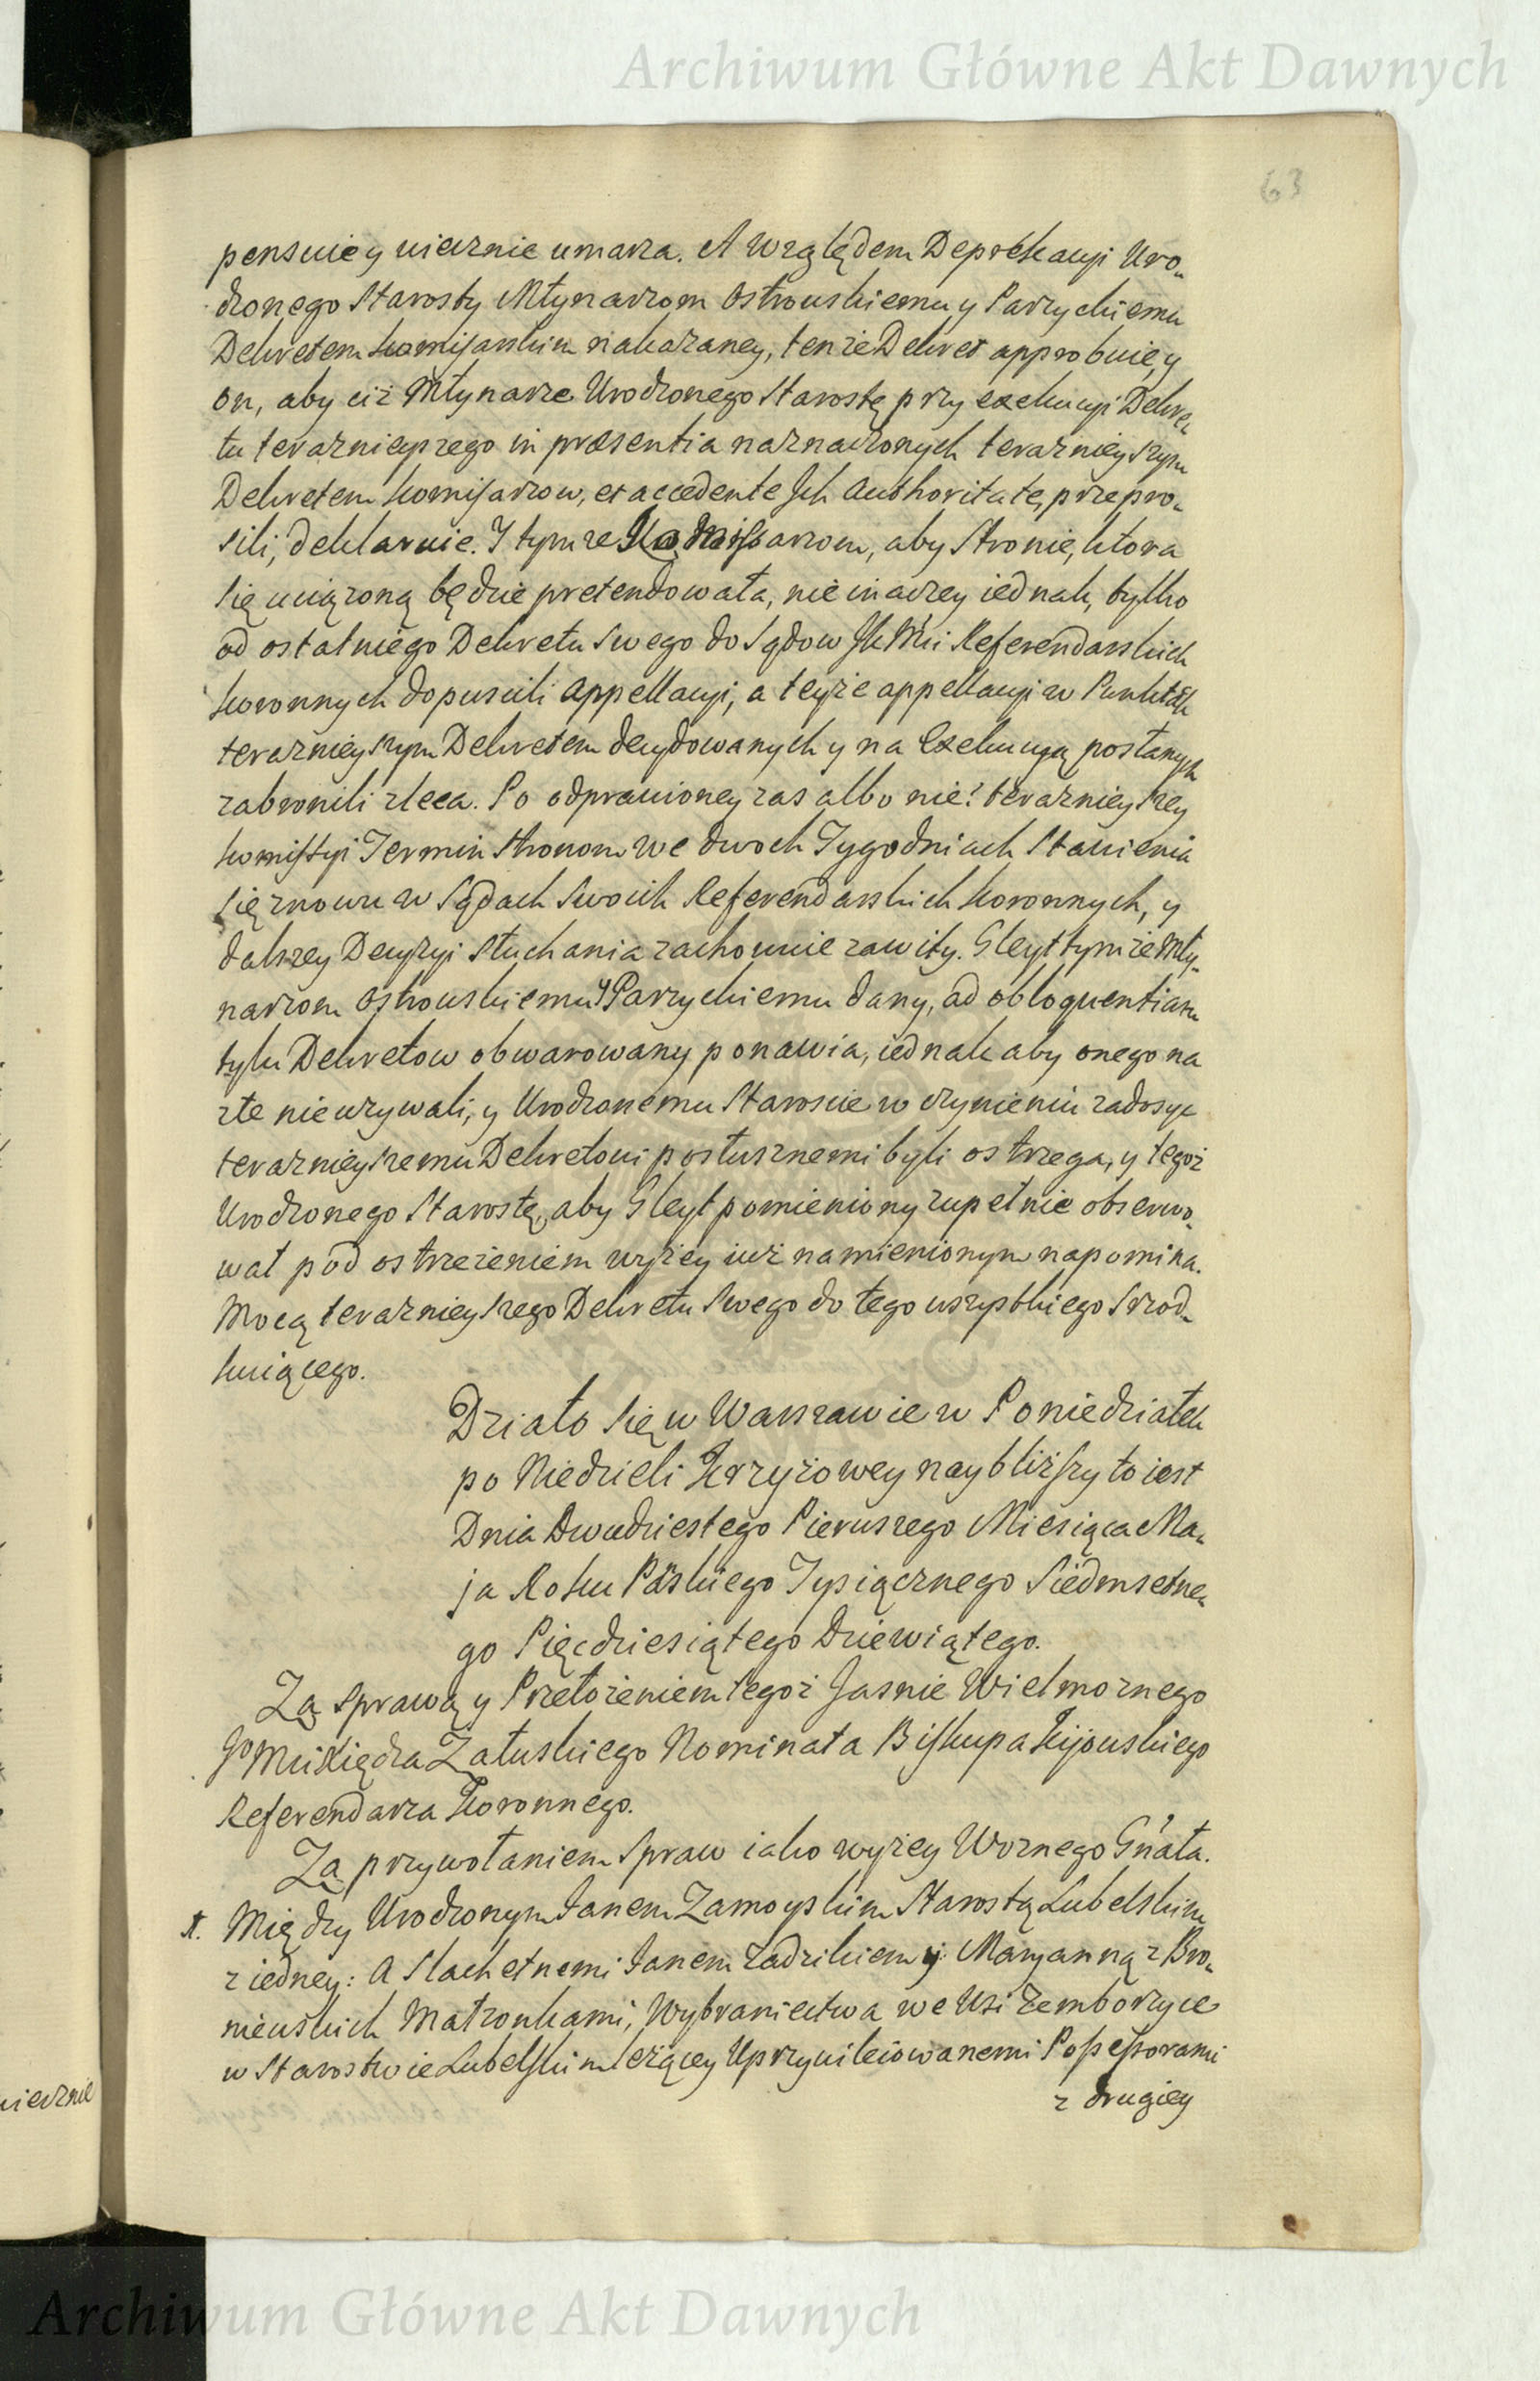 Archiwum Główne Akt Dawnych
63
pensuie y wiecznie umarza. A względem Deprekacyi Uro-
dzonego Starosty Młynarzom Ostrowskiemu y Parzyckiemu
Dekretem Komisarskim nakazaney, tenże Dekret approbuie, y
on, aby ciż Młynarze Urodzonego Starostę przy exekucyi Dekre-
tu teraznieyszego in præsentia naznaczonych teraznieyszym
Dekretem Komisarzow, et accedente Ich Authoritate, przepro-
sili, deklaruie. I tymże Kommissarzom, aby Stronie, ktora
się uciążoną będzie pretendowała, nie inaczey iednak, tylko
od ostatniego Dekretu Swego do Sądow JKMci Referendarskich
Koronnych dopuscili Appellacyi, a teyże appellacyi w Punktach
teraznieyszym Dekretem decydowanych y na Exekucyą posłanych
zabronili zleca. Po odprawioney zas albo nie? teraznieyszey
Komissyi Termin Stronom we dwoch Tygodniach Stawienia
się znowu w Sądach Swoich Referendarskich Koronnych, y
dalszey Decyzyi Słuchania zachowuie zawity. Gleyt tymże Mły-
narzom Ostrowskiemu y Parzyckiemu dany, ad obloquentiam
tylu Dekretow obwarowany ponawia, iednak aby onego na
złe nie używali, y Urodzonemu Staroscie w czynieniu zadosyć
teraznieyszemu Dekretowi posłusznemi byli ostrzega, y tegoż
Urodzonego Starostę, aby Gleyt pomieniony zupełnie obserwo-
wał pod ostrzeżeniem wyżey iuż namienionym napomina.
Mocą teraznieyszego Dekretu Swego do tego wszystkiego Srzod-
kuiącego.
Działo się w Warszawie w Poniedziałek
po Niedzieli Krzyżowey naybliższy to iest
Dnia Dwudziestego Pierwszego Miesiąca Ma-
ja Roku Pańskiego Tysiącznego Siedmsetne-
go Pięcdziesiątego Dziewiątego.
Zą sprawą y Przełożeniem tegoż Jasnie Wielmoznego
JoMci Xiędza Załuskiego Nominata Biskupa Kijowskiego
Referendarza Koronnego.
Zą przywołaniem Spraw iako wyżey Woznego Gńata.
Między Urodzonym Janem Zamoyskim Starostą Lubelskim
z iedney: A Slachetnemi Janem Zadzikiem y Maryanną z Bro-
niewskich Małzonkami, Wybraniectwa we Wsi Zemborzyce
w Starostwie Lubelskim leżącey Uprzywileiowanemi Possessorami
z drugiey
wiecznie
Archiwum Główne Akt Dawnych